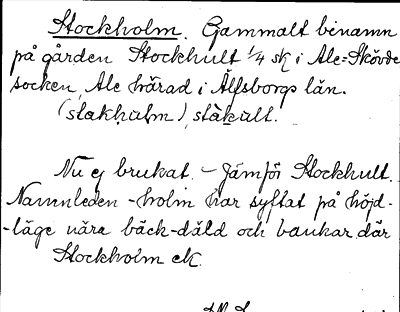 Stockholm. Gammalt binamn
på gården Stockhult 1/4 sk i Ale-Skövde
socken, Ale härad i Älfsborgs län.
(stakhulm), stàkult.
Nu ej brukat. – Jämför Stockhult.
Namnleden -holm har syftat på höjd-
-läge nära bäck-däld och bankar där
Stockholm ek.